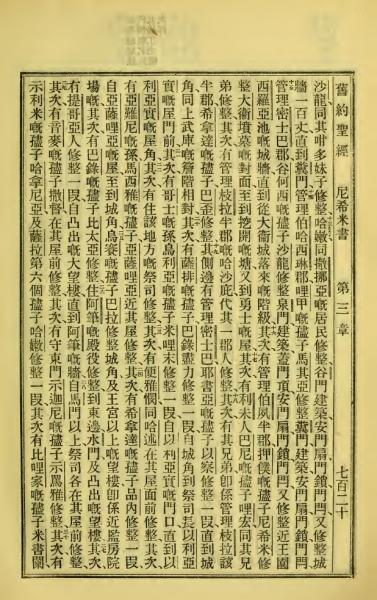 舊約聖經 尼希米書 第三章 七百二十
沙龍同其咁多妹子修整哈嫩同撒挪亞嘅居民修整谷門建築安門扇門鎖門閂又修整城
牆一百丈直到糞門管理伯哈西琳郡哩甲嘅孻子馬其亞修整糞門建築安門扇門鎖門閂
管理密士巴郡谷何西嘅孻子沙龍修整泉門建築蓋門頂安門扇門鎖門閂又修整近王園
西羅亞池嘅城牆直到從大衞城落來嘅階級其次有管理伯夙半郡押僕嘅孻子尼希米修
整大衞墳墓嘅對面至到挖開嘅塘又到勇士嘅屋其次有利未人巴尼嘅孻子哩宏同其兄
弟修整其次有管理枝拉半郡嘅哈沙庇代其一郡人修整其次有其兄弟卽係管理枝拉該
半郡希拿達嘅孻子巴歪修整其側邊有管理密士巴耶書亞嘅孻子以察修整一段直到城
角同上武庫嘅簷階相對其次有薩排嘅孻子巴錄盡力修整一段自城角到祭司長以利亞
實嘅屋門前其次有哥士嘅孫烏利亞嘅孻子米哩末修整一段自以利亞實嘅門口直到以
利亞實嘅屋角其次有住該地方嘅祭司修整其次有便雅憫同哈述在其屋面前修整其次
有亞難尼嘅孫馬西雅嘅孻子亞薩哩亞近其屋修整其次有希拿達嘅孻子品內修整一段
自亞薩哩亞嘅屋至到城角烏賽嘅孻子巴拉修整城角及王宮以上嘅望樓卽係近監房院
場嘅其次有巴錄嘅孻子比太亞修整住阿筆嘅殿役修整到東邊水門及凸出嘅望樓其次
有提哥亞人修整一段自凸出嘅大望樓直到阿筆嘅牆自馬門以上祭司各在其屋前修整
其次有音麥嘅孻子撒督在其屋前修整其次有守東門示迦尼嘅孻子示罵雅修整其次有
示利米嘅孻子哈拿尼亞及薩拉第六個孻子哈嫩修整一段其次有比哩家嘅孻子米書闌